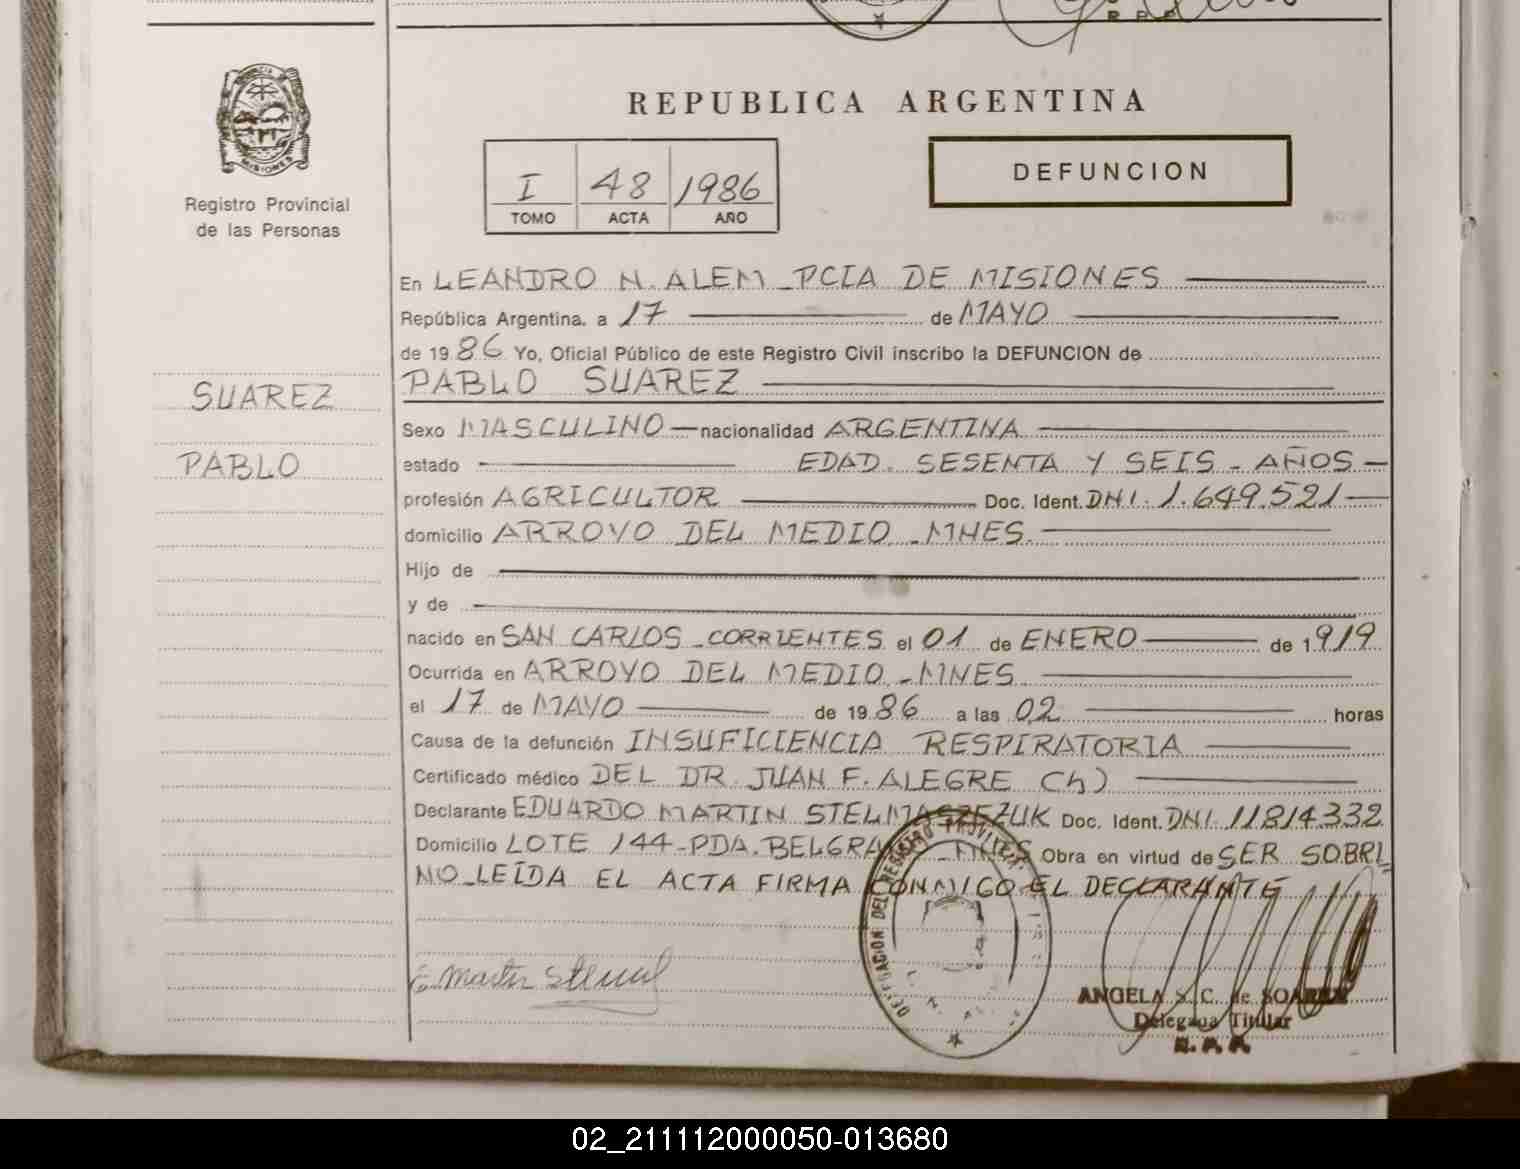 MISIONES
Registro Provincial
de las Personas
SUAREZ
PABLO
REPUBLICA ARGENTINA
I 48 1986
TOMO ACTA AÑO
DEFUNCION
En LEANDRO N. ALEM _ PCIA DE MISIONES
República Argentina, a 17 de MAYO
de 1986 Yo, Oficial Público de este Registro Civil inscribo la DEFUNCION de
PABLO SUAREZ
Sexo MASCULINO nacionalidad ARGENTINA
estado EDAD. SESENTA Y SEIS - AÑOS
profesión AGRICULTOR Doc. Ident. DNI. 1.649.521
domicilio ARROYO DEL MEDIO _ MNES.
Hijo de
y de
nacido en SAN CARLOS _ CORRIENTES el 01 de ENERO de 1919
Ocurrida en ARROYO DEL MEDIO _ MNES
el 17 de MAYO de 1986 a las 02 horas
Causa de la defunción INSUFICIENCIA RESPIRATORIA
Certificado médico DEL DR. JUAN F. ALEGRE (h)
Declarante EDUARDO MARTIN STELMASZEZUK Doc. Ident. DNI. 11814332
Domicilio LOTE 144 - PDA. BELGRANO _ MNES Obra en virtud de SER SOBRI_
NO _ LEÍDA EL ACTA FIRMA CONMIGO EL DECLARANTE
E. Martin
DELEGACION DEL REGISTRO PROVINCIAL
ANGELA S. C. de SOAREZ
Delegada Titular
R. P. P.
02_211112000050-013680